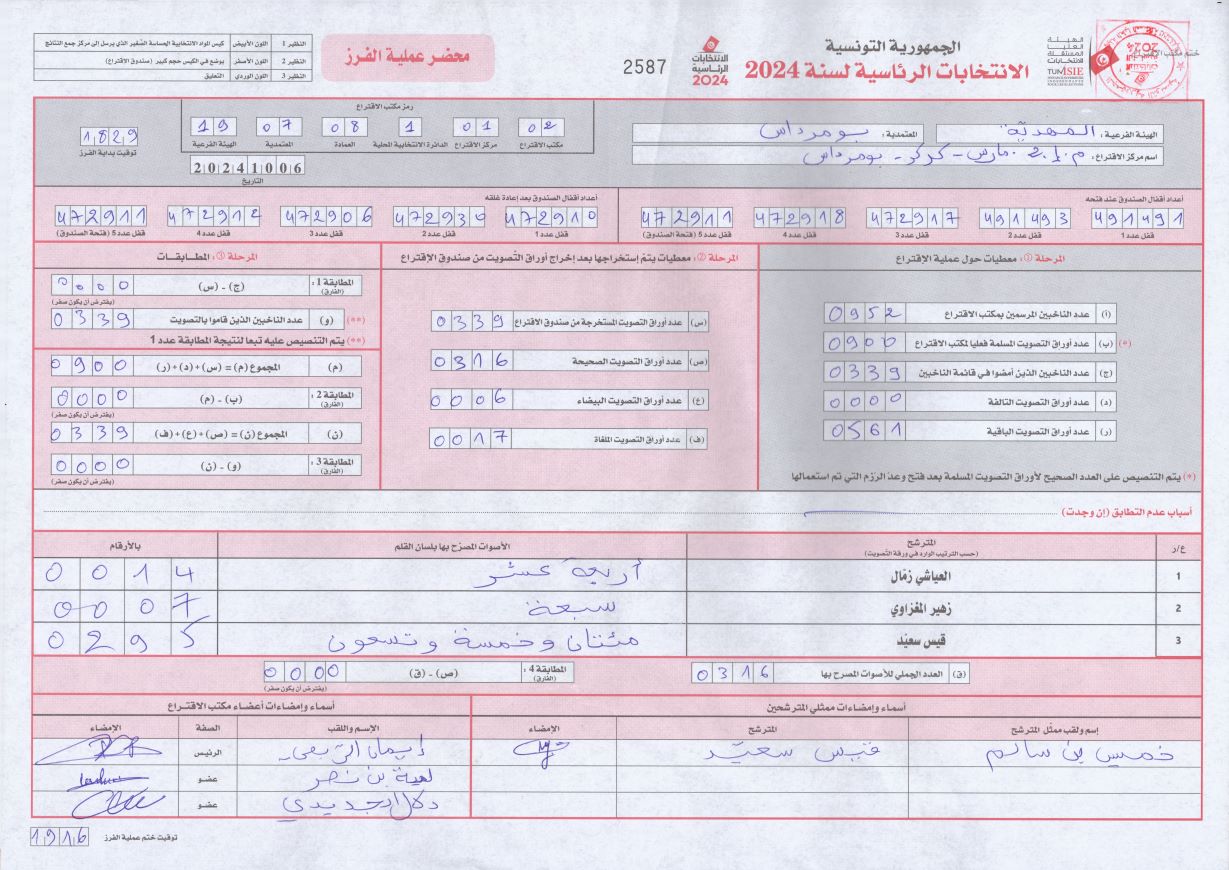 الجمهورية التونسية
الانتخابات الرئاسية لسنة 2024
الهيئة
العليا
المستقلة
للانتخابات
TUNISIE
الانتخابات
الرئاسية
2024
2587
محضر عملية الفرز
النظير 1 اللون الأبيض كيس المواد الانتخابية الحساسة الصّغير الذي يرسل إلى مركز جمع النتائج
النظير 2 اللون الأصفر يوضع في الكيس حجم كبير (صندوق الاقتراع)
النظير 3 اللون الوردي التعليق
ختم مكتب الاقتراع
الهيئة الفرعية : المهديّة المعتمدية : بومرداس
اسم مركز الاقتراع : م.إ. 2 مارس - كركر - بومرداس
رمز مكتب الاقتراع
02 01 1 08 07 19
مكتب الاقتراع مركز الاقتراع الدائرة الانتخابية المحلية العمادة المعتمدية الهيئة الفرعية
20241006
التاريخ
1829
توقيت بداية الفرز
أعداد أقفال الصندوق عند فتحه
491491 491493 472917 472918 472911
قفل عدد 1 قفل عدد 2 قفل عدد 3 قفل عدد 4 قفل عدد 5 (فتحة الصندوق)
أعداد أقفال الصندوق بعد إعادة غلقه
472910 472930 472906 472912 472911
قفل عدد 1 قفل عدد 2 قفل عدد 3 قفل عدد 4 قفل عدد 5 (فتحة الصندوق)
المرحلة ①: معطيات حول عملية الاقتراع
(أ) عدد الناخبين المرسمين بمكتب الاقتراع 0952
(*) (ب) عدد أوراق التصويت المسلمة فعليا لمكتب الاقتراع 0900
(ج) عدد الناخبين الذين أمضوا في قائمة الناخبين 0339
(د) عدد أوراق التصويت التالفة 0000
(ر) عدد أوراق التصويت الباقية 0561
(*) يتم التنصيص على العدد الصحيح لأوراق التصويت المسلمة بعد فتح وعدّ الرّزم التي تم استعمالها
المرحلة ②: معطيات يتم إستخراجها بعد إخراج أوراق التّصويت من صندوق الإقتراع
(س) عدد أوراق التصويت المستخرجة من صندوق الاقتراع 0339
(ص) عدد أوراق التصويت الصحيحة 0316
(ع) عدد أوراق التصويت البيضاء 0006
(ف) عدد أوراق التصويت الملغاة 0017
المرحلة ③: المطابقات
المطابقة 1 : (الفارق) (ج) - (س) 0000
(يفترض أن يكون صفر)
(**) (و) عدد الناخبين الذين قاموا بالتصويت 0339
(**) يتم التنصيص عليه تبعا لنتيجة المطابقة عدد 1
(م) المجموع (م) = (س) + (د) + (ر) 0900
المطابقة 2 : (الفارق) (ب) - (م) 0000
(يفترض أن يكون صفر)
(ن) المجموع (ن) = (ص) + (ع) + (ف) 0339
المطابقة 3 : (الفارق) (و) - (ن) 0000
(يفترض أن يكون صفر)
أسباب عدم التطابق (إن وجدت)
ع/ر المترشح (حسب الترتيب الوارد في ورقة التّصويت) الأصوات المصرّح بها بلسان القلم بالأرقام
1 العياشي زمّال أربعة عشر 0014
2 زهير المغزاوي سبعة 0007
3 قيس سعيّد مئتان وخمسة وتسعون 0295
(ق) العدد الجملي للأصوات المصرح بها 0316
المطابقة 4 : (الفارق) (ص) - (ق) 0000
(يفترض أن يكون صفر)
أسماء وإمضاءات ممثلي المترشحين
إسم ولقب ممثّل المترشح المترشح الإمضاء
خميس بن سالم قيس سعيّد
أسماء وإمضاءات أعضاء مكتب الاقتراع
الإسم واللقب الصفة الإمضاء
إيمان الرئيس
لمية بن نصر عضو
دلال الجديدي عضو
توقيت ختم عملية الفرز 1916